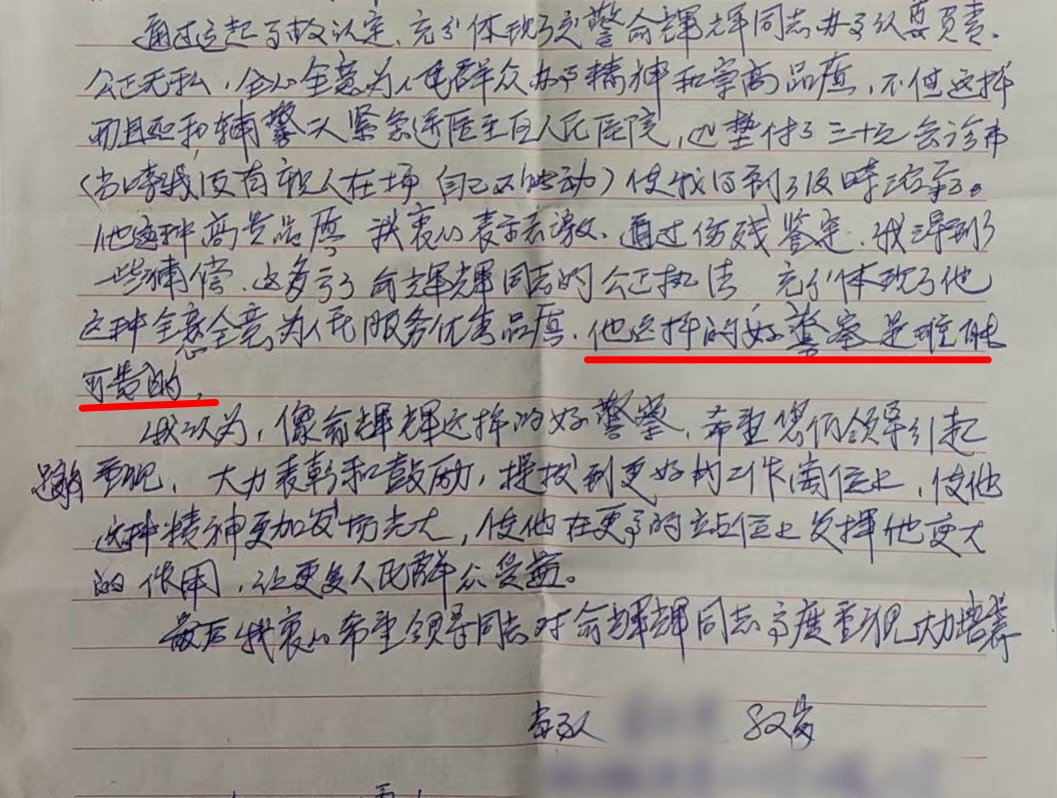 通过这起事故认定，充分体现了交警俞辉辉同志办事认真负责。
公正无私，全心全意为人民群众办事精神和崇高品质，不但这样
而且还和辅警人紧急送医至人民医院，还垫付了三十元会诊
（当时我没有亲人在场 自己不能动）使我得到了及时治疗。
他这种高贵品质 我衷心表示感激。通过伤残鉴定，我得到了
一些补偿，这多亏了俞辉辉同志的公正执法 充分体现了他
这种全心全意为人民服务优秀品质，他这样的好警察是难能
可贵的，
我认为，像俞辉辉这样的好警察，希望您们领导引起
重视，大力表彰和鼓励，提拔到更好的工作岗位上，使他
这种精神更加发扬光大，使他在更高的站位上发挥他更大
的作用，让更多人民群众受益。
最后我衷心希望领导同志对俞辉辉同志高度重视大力培养
当事人 82岁